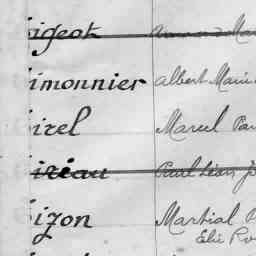 igeot
imonnier Albert Mari
irel Marcel Pa
iréau Paul Léon J
izon Martial P
Elie Ro